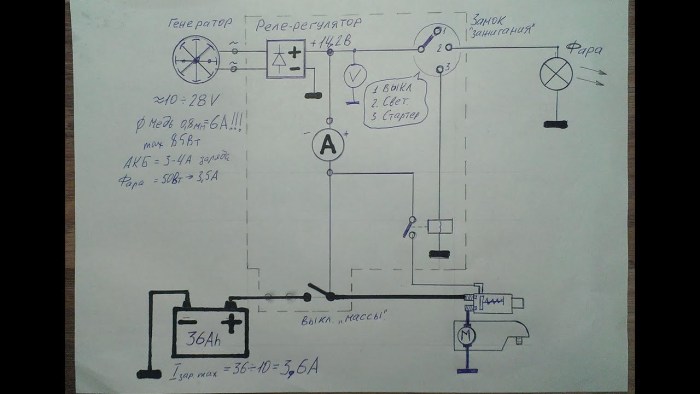 Генератор
Реле-регулятор
Замок
"зажигания"
+14,2В
~
~
+
-
V
1
2
3
Фара
1 Выкл
2. Свет.
3 Стартер
≈10÷28V
Ф медь 0,8мм=6А!!!
max 85Вт
АКБ = 3-4А заряд
Фара = 50Вт → 3,5А
- +
А
Выкл „массы"
- +
36Ah
М
I зар. max = 36÷10 = 3,6А